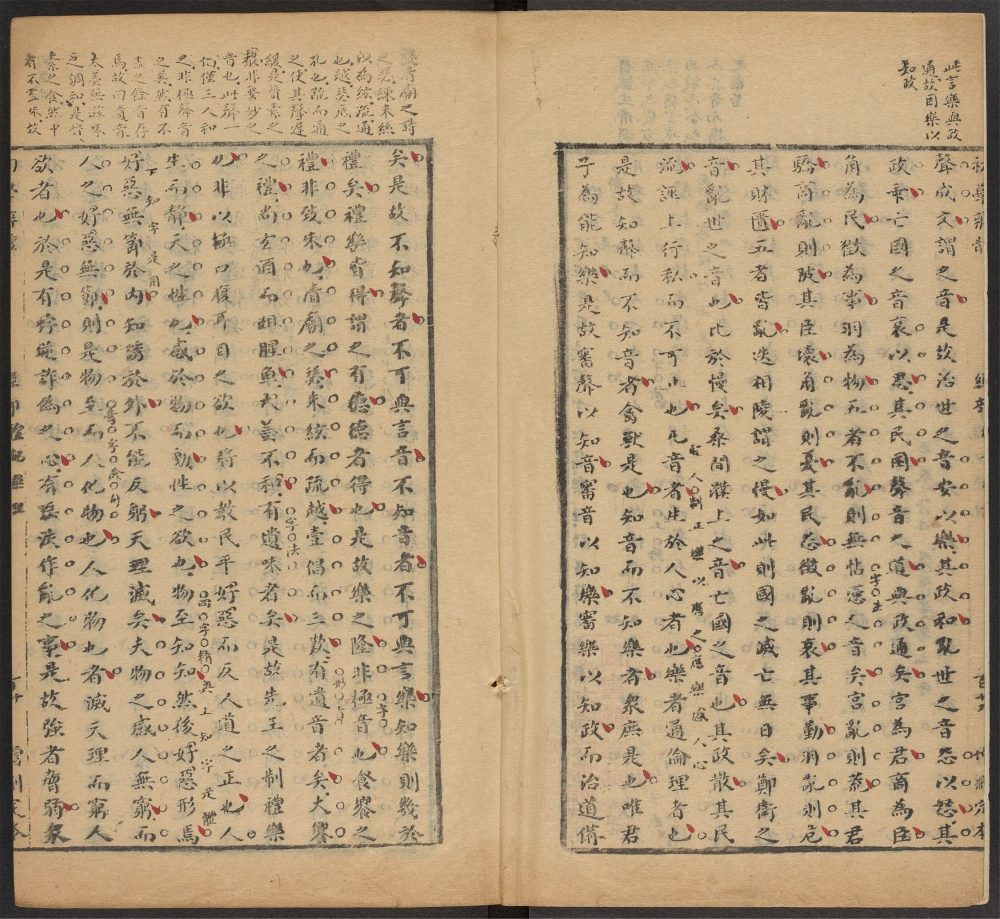 此言樂與政
通故因樂以
知政
聲成文謂之音是故治世之音安以樂其政和亂世之音怨以怒其
政乖亡國之音哀以思其民困聲音之道與政通矣宮為君商為臣
角為民徵為事羽為物五者不亂則無怗懘之音矣宮亂則荒其君
驕商亂則陂其臣壞角亂則憂其民怨徵亂則哀其事勤羽亂則危
其財匱五者皆亂迭相陵謂之慢如此則國之滅亡無日矣鄭衛之
音亂世之音也比於慢矣桑間濮上之音亡國之音也其政散其民
流誣上行私而不可止也凡音者生於人心者也樂者通倫理者也
是故知聲而不知音者禽獸是也知音而不知樂者眾庶是也唯君
子為能知樂是故審聲以知音審音以知樂審樂以知政而治道備
之瑟練朱絲
以為絃疏通
也越瑟底之
孔也疏而通
之使其聲遲
緩是質素之
聲非要妙之
音也此聲一
倡僅三人和
之非極聲音
之美然有不
盡之餘音存
焉故曰遺音
大羹無滋味
之調和是質
素之食然中
有不盡味故
矣是故不知聲者不可與言音不知音者不可與言樂知樂則幾於
禮矣禮樂皆得謂之有德德者得也是故樂之隆非極音也食饗之
禮非致味也清廟之瑟朱絃而疏越壹倡而三歎有遺音者矣大饗
之禮尚玄酒而俎腥魚大羹不和有遺味者矣是故先王之制禮樂
也非以極口腹耳目之欲也將以教民平好惡而反人道之正也人
上知字是體
生而靜天之性也感於物而動性之欲也物至知知然後好惡形焉
下知字是用
好惡無節於內知誘於外不能反躬天理滅矣夫物之感人無窮而
人之好惡無節則是物至而人化物也人化物也者滅天理而窮人
欲者也於是有悖逆詐偽之心有淫泆作亂之事是故強者脅弱眾